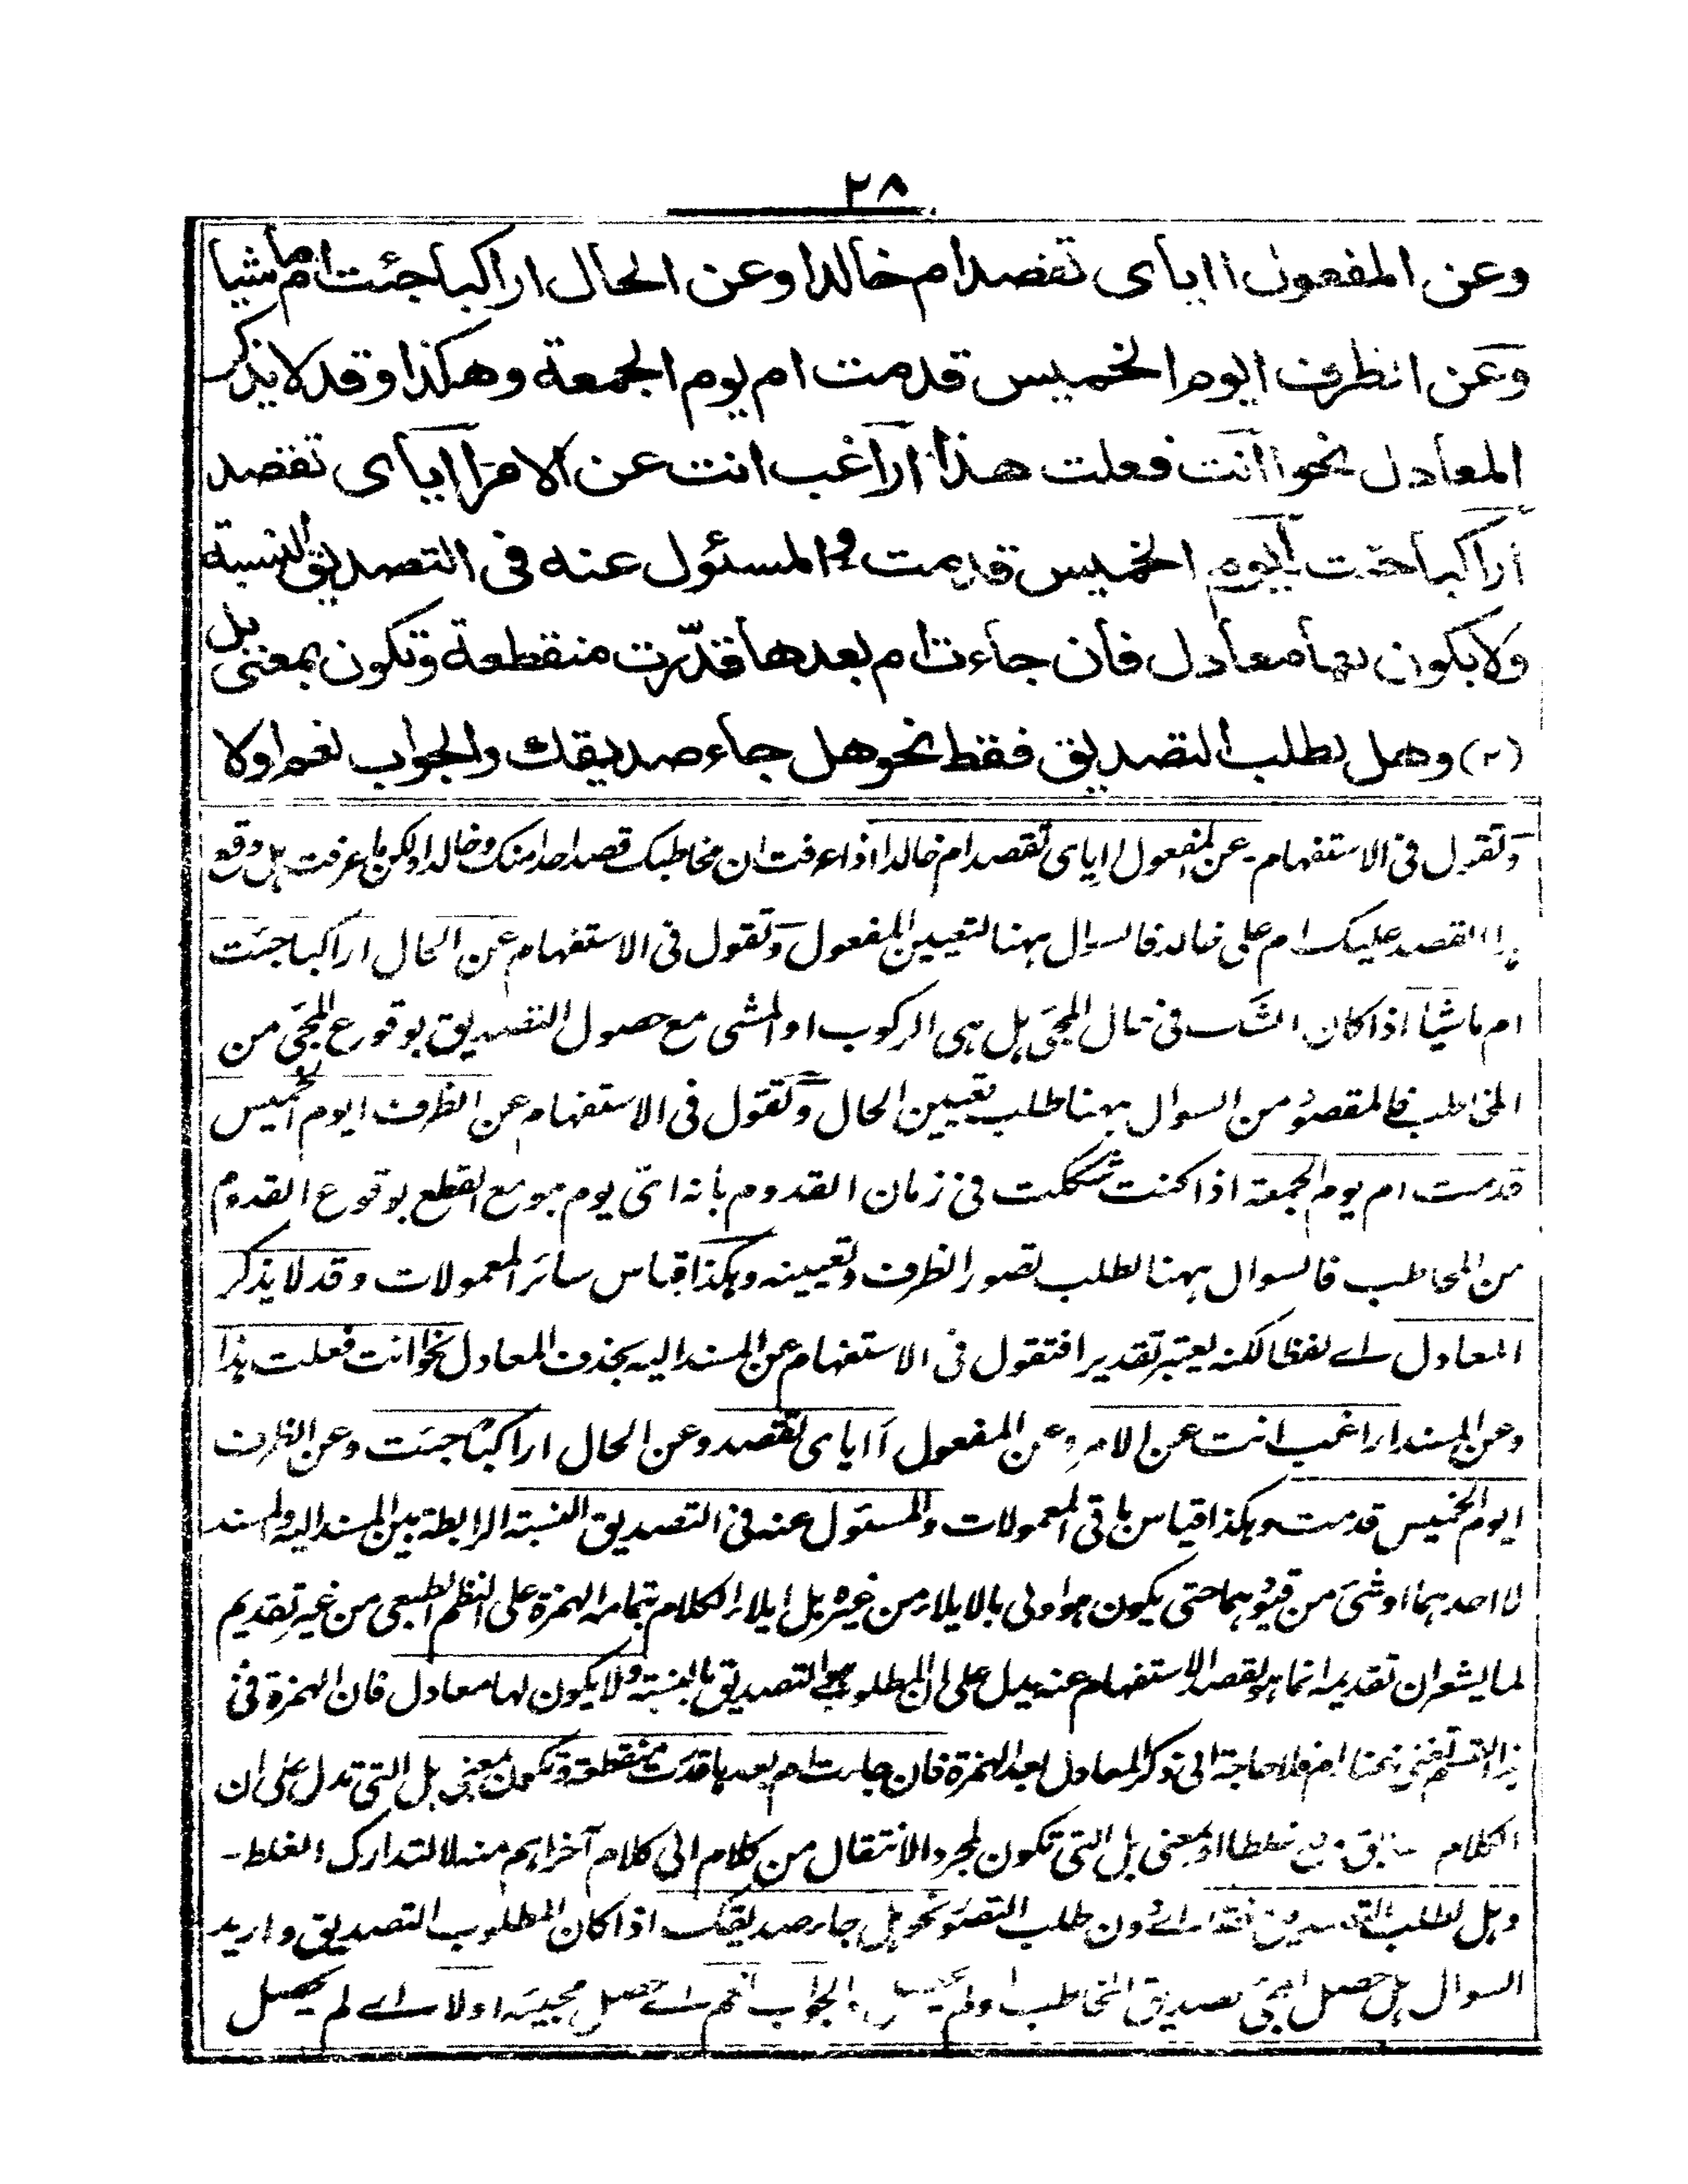 ٢٨
وعن المفعول اایای تقصد ام خالدا وعن الحال اراکبا جئت ام ماشیا
وعن الظرف ایوم الخمیس قدمت ام یوم الجمعة وهکذا وقد لا یذکر
المعادل نحو اانت فعلت هذا اراغب انت عن الامر اایای تقصد
اراکبا جئت ایوم الخمیس قدمت والمسئول عنه فی التصدیق النسبة
ولا یکون لها معادل فان جاءت ام بعدها قدّرت منقطعة وتکون بمعنی بل
(٢) وهل لطلب التصدیق فقط نحو هل جاء صدیقك والجواب نعم اولا
وتقول فی الاستفهام عن المفعول اایای تقصد ام خالدا اذا عرفت ان مخاطبک قصد احدا منک وخالد اولکن ما عرفت هل وقع
هذا القصد علیک ام علی خالد فالسوال ههنا لتعیین المفعول وتقول فی الاستفهام عن الحال اراکبا جئت
ام ماشیا اذا کان الشک فی حال المجئ هل هی الرکوب او المشی مع حصول التصدیق بوقوع المجئ من
المخاطب فالمقصود من السوال ههنا طلب تعیین الحال وتقول فی الاستفهام عن الظرف ایوم الخمیس
قدمت ام یوم الجمعة اذا کنت شککت فی زمان القدوم بانه ای یوم هو مع القطع بوقوع القدوم
من المخاطب فالسوال ههنا لطلب تصور الظرف وتعیینه وهکذا قیاس سائر المعمولات وقد لا یذکر
المعادل اے لفظا لکنه یعتبر تقدیرا فتقول فی الاستفهام عن المسند الیه بحذف المعادل نحو اانت فعلت هذا
وعن المسند اراغب انت عن الامر وعن المفعول أایای تقصد وعن الحال اراکبا جئت وعن الظرف
ایوم الخمیس قدمت وهکذا قیاس باقی المعمولات والمسئول عنه فی التصدیق النسبة الرابطة بین المسند الیه والمسند
لا احدهما او شئ من قیودهما حتی یکون هو اولی بالایلاء من غیره بل ایلاء الکلام بتمامه الهمزة علی النظم الطبعی من غیر تقدیم
لما یشعر ان تقدیمه انما هو لقصد الاستفهام عنه یدل علی ان المطلوب هو التصدیق بالنسبة ولا یکون لها معادل فان الهمزة فی
هذا القسم فلا حاجة الی ذکر المعادل بعد الهمزة فان جاءت ام بعدها قدرت منقطعة وتکون بمعنی بل التی تدل علی ان
الکلام وقع غلطا او بمعنی بل التی تکون لمجرد الانتقال من کلام الی کلام آخر اهم منه لا لتدارک الغلط -
وهل لطلب التصدیق فقط اے دون طلب التصور نحو هل جاء صدیقک اذا کان المطلوب التصدیق وارید
السوال هل حصل مجئ صدیق المخاطب اولم یحصل والجواب نعم اے حصل مجیئه اولا اے لم یحصل